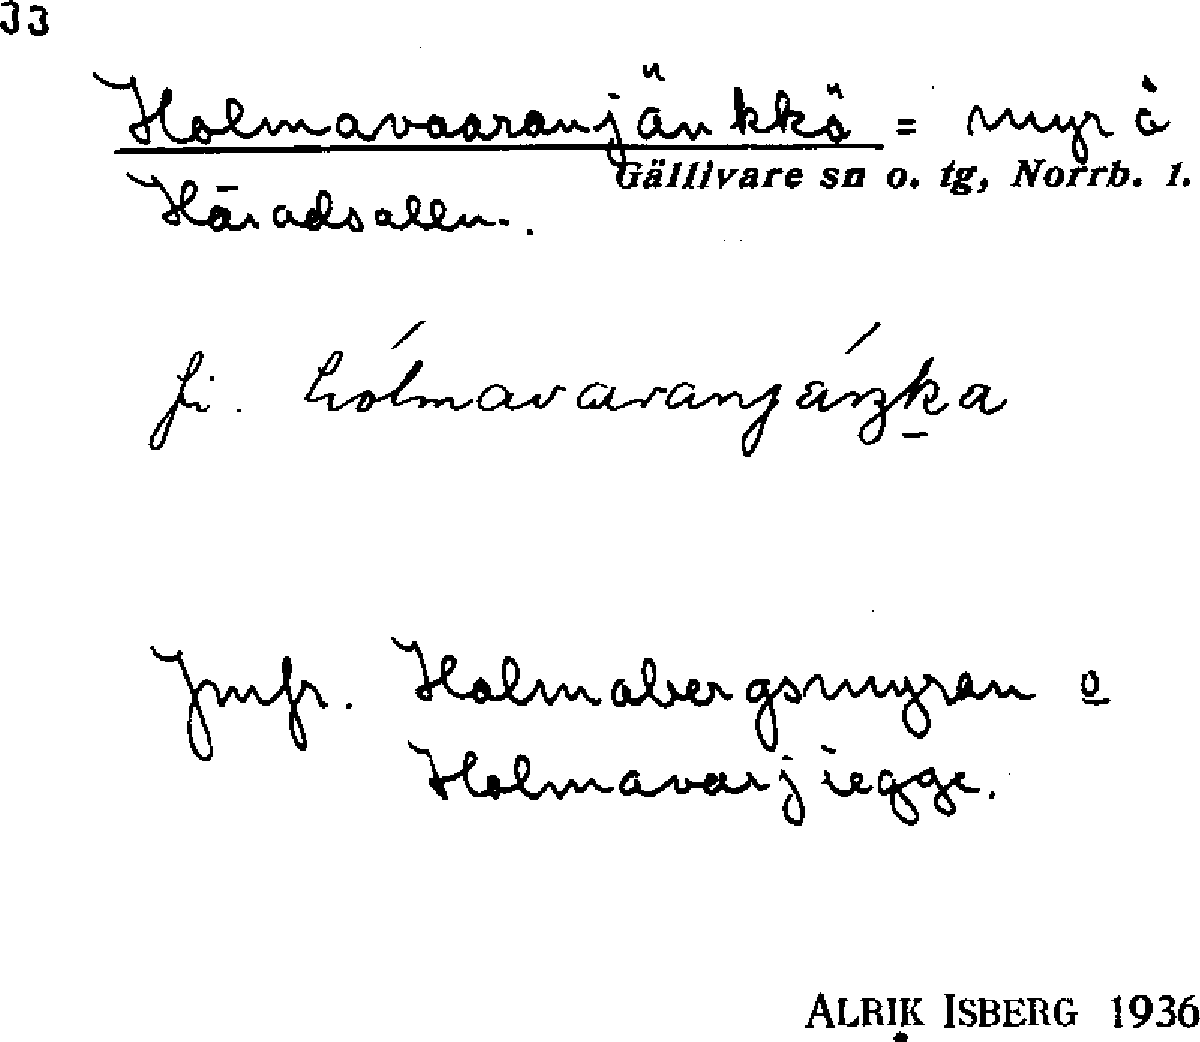 33
Holmavaaranjänkkö = myr å
Gällivare sn o. tg, Norrb. l.
Häradsallm.
fi. hólmavaranjáŋka
Jmfr. Holmabergsmyran o
Holmavarjiegge.
ALRIK ISBERG 1936